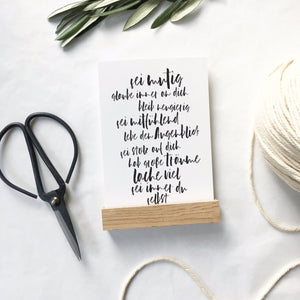 sei mutig
glaube immer an dich
bleib neugierig
sei mitfühlend
lebe den Augenblick
sei stolz auf dich
hab große Träume
lache viel
sei immer du
selbst